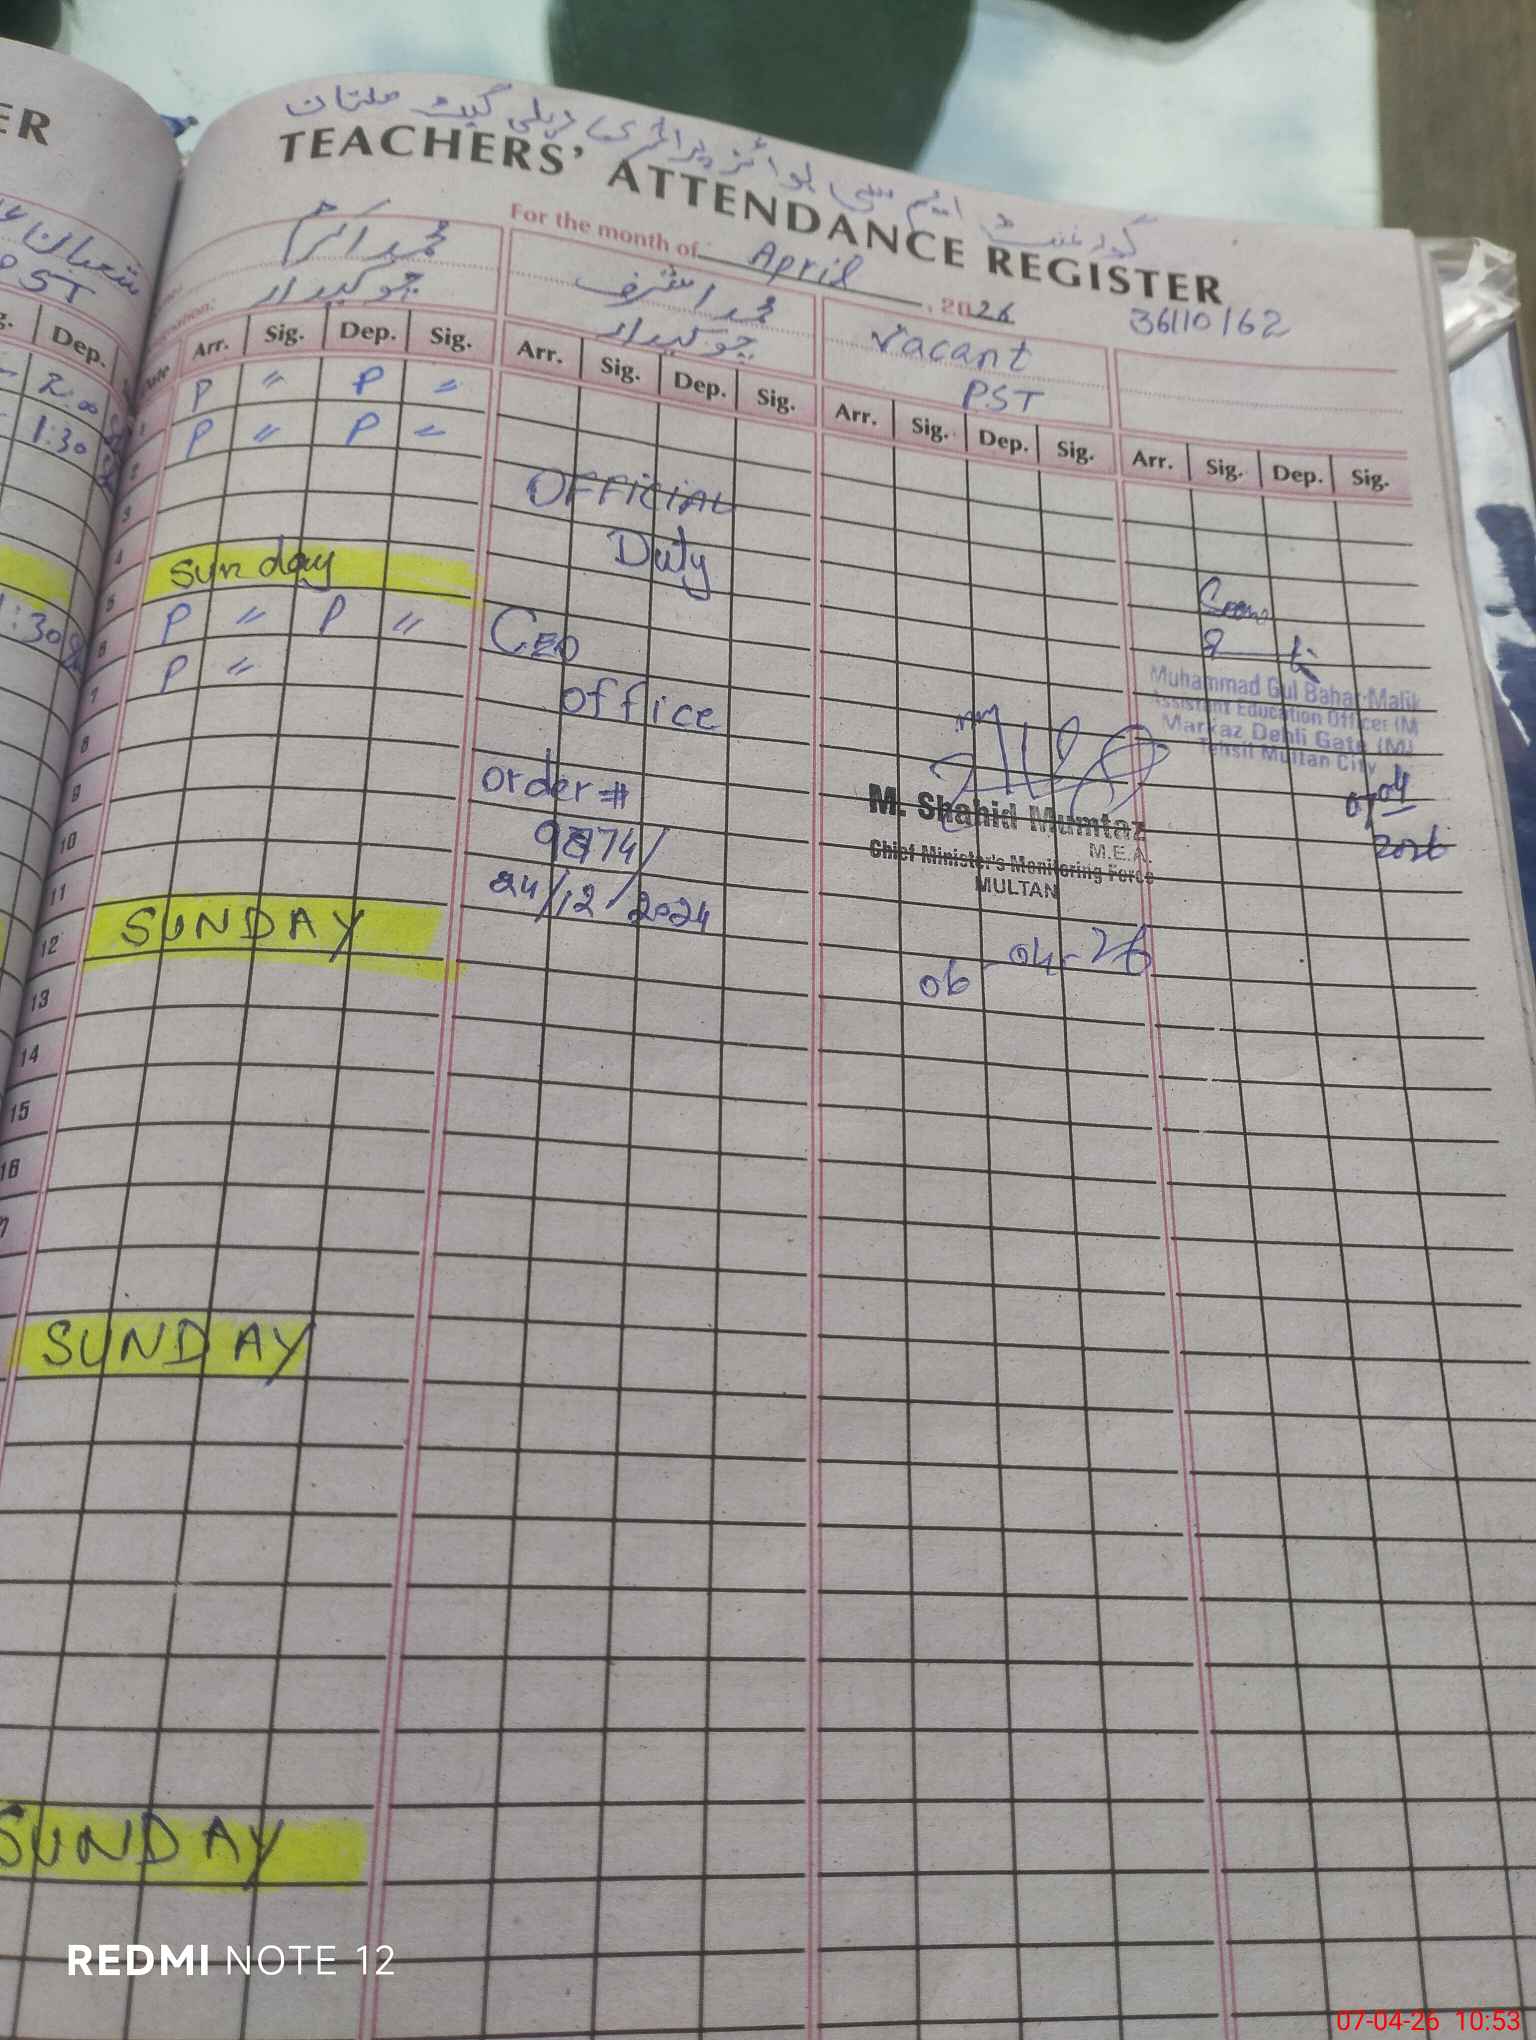 ER
گورنمنٹ ایم سی بوائز پرائمری دہلی گیٹ ملتان
TEACHERS' ATTENDANCE REGISTER
For the month of April, 2026
36110162
شعبان
PST
محمد اکرم
چوکیدار
محمد اشرف
چوکیدار
Vacant
PST
Dep.
Date Arr. Sig. Dep. Sig. Arr. Sig. Dep. Sig. Arr. Sig. Dep. Sig. Arr. Sig. Dep. Sig.
2:00
1 P 〃 P 〃
1:30
2 P 〃 P 〃
3
OFFICIAL
4
Duty
5 Sunday
1:30
6 P 〃 P 〃
CEO
7 P 〃
office
8
9
order #
10
9874/
11
24/12/2024
12 SUNDAY
13
14
15
16
SUNDAY
SUNDAY
Muhammad Gul Bahar Malik
Assistant Education Officer (M)
Markaz Dehli Gate (M)
Tehsil Multan City
07/04
2026
M. Shahid Mumtaz
M.E.A.
Chief Minister's Monitoring Force
MULTAN
06-04-26
REDMI NOTE 12
07-04-26 10:53